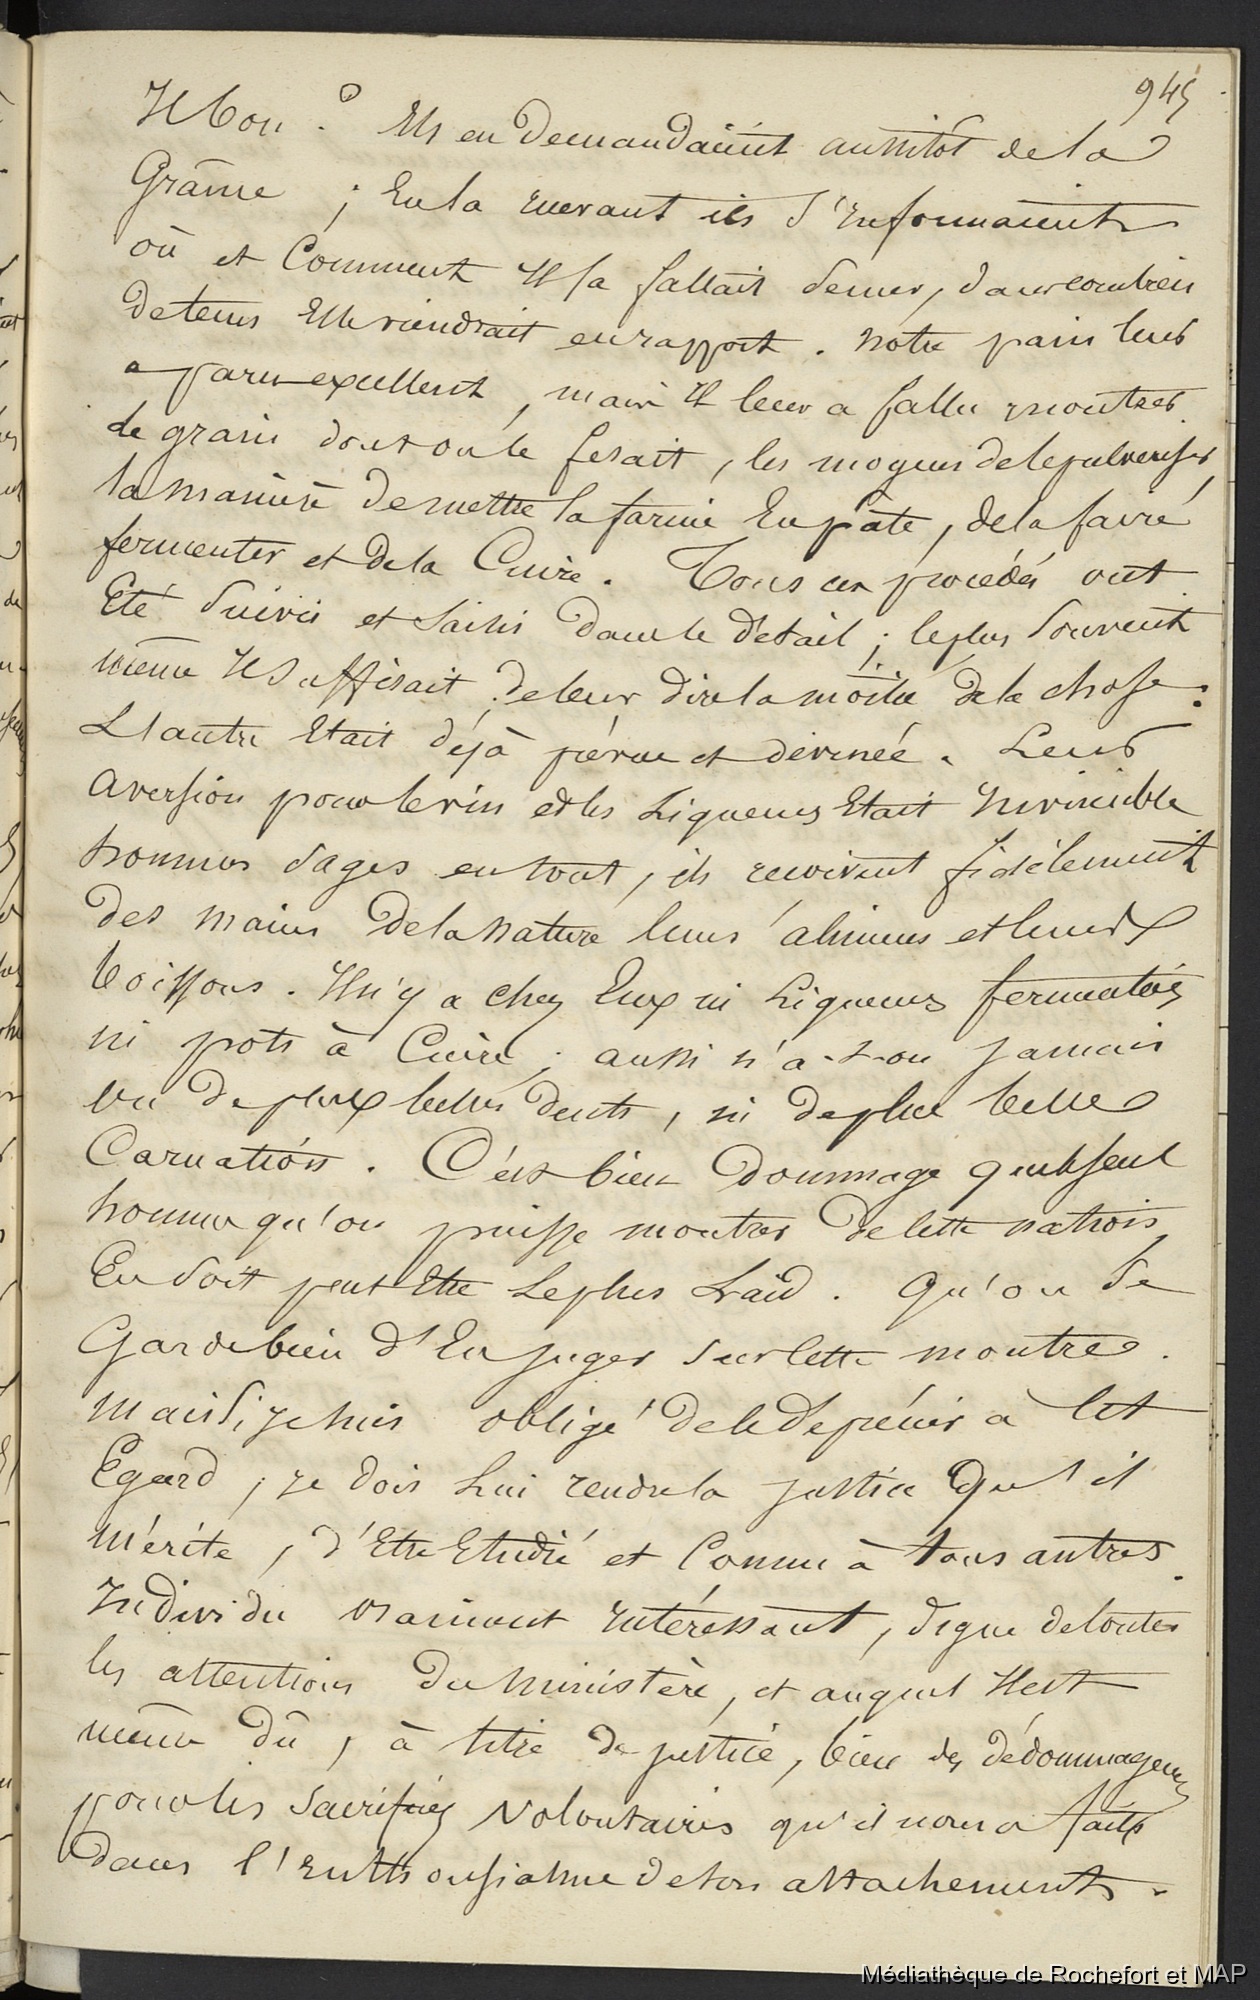 945
Il bon ? Ils en demandaient aussitôt de la
Graine ; En la recevant ils s'Informaient
où et Comment Il la fallait semer, dans combien
de tems Elle viendrait en rapport . notre pain leur
a paru excellent , mais Il leur a fallu montrer
le grain dont on le fesait , les moyens de le pulveriser,
la manière de mettre la farine En pâte , de la faire
fermenter et de la Cuire . Tous ces procédés ont
Eté Suivis et Saisis dans le détail ; le plus Souvent
même Il Suffisait de leur dire la moitié de la chose :
L'autre Etait déjà prévue et devinée . Leur
aversion pour le vin et les Liqueurs Etait Invincible
hommes Sages en tout , ils reçoivent fidèlement
des mains de la Nature leurs alimens et leurs
boissons . Il n'y a chez Eux ni Liqueurs fermentées
ni pots à Cuire ; aussi n'a-t-on jamais
vu de plus belles dents , ni de plus belle
Carnation . C'est bien dommage que le seul
homme qu'on puisse montrer de cette nation
En Soit peut Etre Le plus Laid . Qu'on Se
Garde bien d'En juger Sur cette montre .
mais Si je suis obligé de le déprécier à Cet
Egard , je dois Lui rendre la justice qu'il
mérite , d'Etre Etudié et Connu à tous autres .
Individu vraiment Intéressant , digne de toutes
les attentions du Ministère , et auquel Il est
même dû , à titre de justice , bien des dédommagemens
pour les Sacrifices Volontaires qu'il nous a faits
dans l'Enthousiasme de son attachement .
Médiathèque de Rochefort et MAP